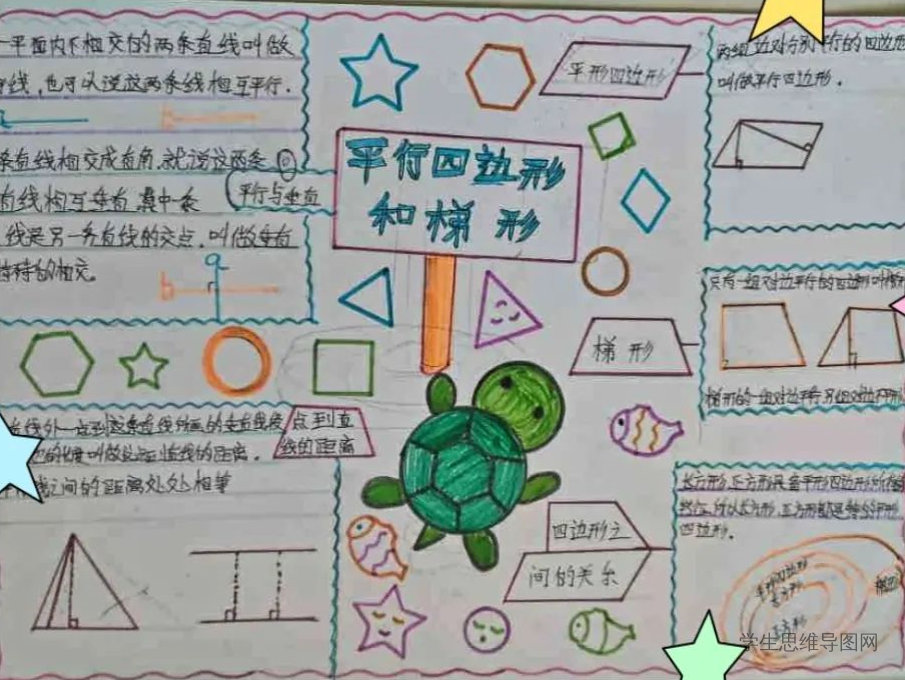 一平面内不相交的两条直线叫做
行线，也可以说这两条线相互平行.
条直线相交成直角，就说这两条
直线相互垂直 其中一条
线是另一条直线的交点，叫做垂直
特殊的相交。
a
b
平行与垂直
平行四边形
和梯形
平形四边形
两组边对分别平行的四边形
叫做平行四边形.
梯形
只有一组对边平行的四边形叫做
梯形的一组对边平行
直线外一点到这条直线所画的垂直线段
的长度叫做这点到直线的距离.
之间的距离处处相等
点到直
线的距离
四边形之
间的关系
长方形，正方形具备平形四边形
所以长方形，正方形都是特殊的平形
四边形.
平形四边形
长方形
正方形
梯形
学生思维导图网